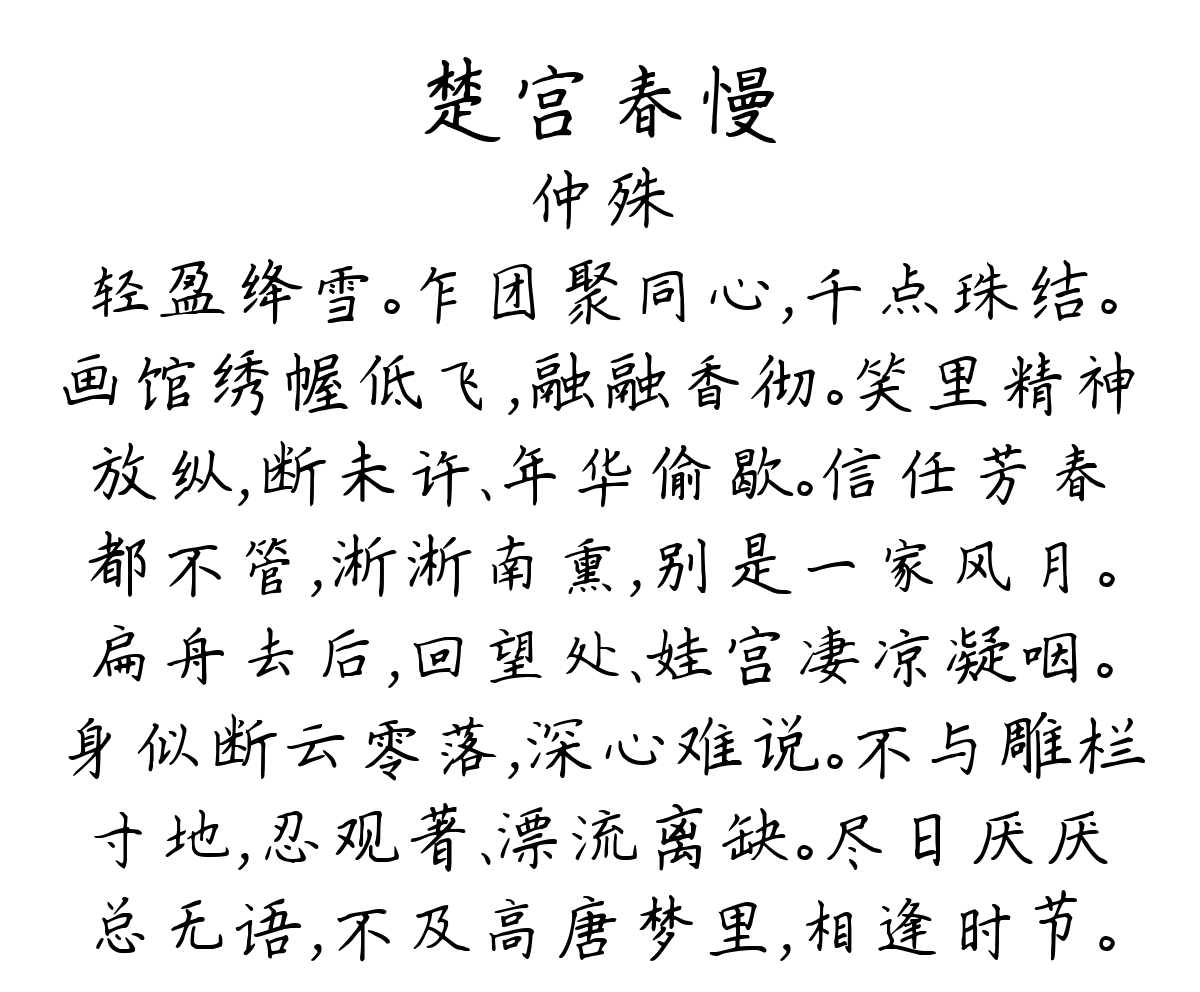 楚宫春慢
仲殊
轻盈绛雪。乍团聚同心,千点珠结。
画馆绣幄低飞,融融香彻。笑里精神
放纵,断未许、年华偷歇。信任芳春
都不管,淅淅南熏,别是一家风月。
扁舟去后,回望处、娃宫凄凉凝咽。
身似断云零落,深心难说。不与雕栏
寸地,忍观著、漂流离缺。尽日厌厌
总无语,不及高唐梦里,相逢时节。